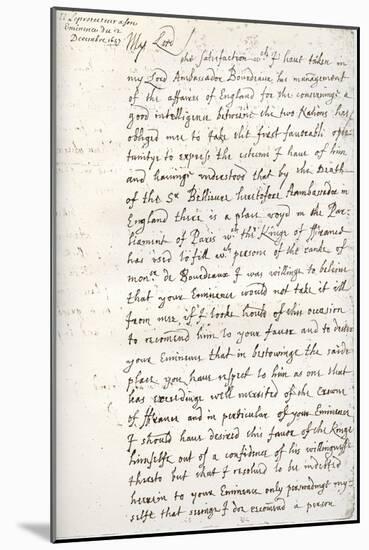 Le protecteur a son
Eminence du 12
Decembre 1657
My Lord
the satisfaction wch I have taken in
my Lord Ambassador Bourdeaux his management
of the affaires of England for the conservinge a
good intelligence betweene the two Nations has
obliged mee to take the first favorable opor
tunitye to express the esteeme I have of him
and havinge understood that by the Death
of the Sr Bellievre heretofore Ambassador in
England there is a place voyd in the Par
liament of Paris wch the Kinge of ffrance
has used to fill wth persons of the ranke of
monsr de Bourdeaux I was willinge to believe
that your Eminence would not take it ill
from mee if I tooke hould of this occasion
to recomend him to your favor and to desire
your Eminence that in bestowinge the saide
place you have respect to him as one that
has exceedinge well merited of the Crowne
of ffrance and in particular of your Eminence
I should have desired this favor of the Kinge
himselfe out of a confidence of his willingnesse
thereto but that I resolved to be indebted
herein to your Eminence only perswadinge my
selfe that seeinge I doe recomend a person